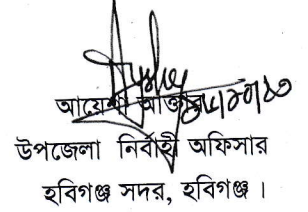 আয়েশা আক্তার
উপজেলা নির্বাহী অফিসার
হবিগঞ্জ সদর, হবিগঞ্জ ।